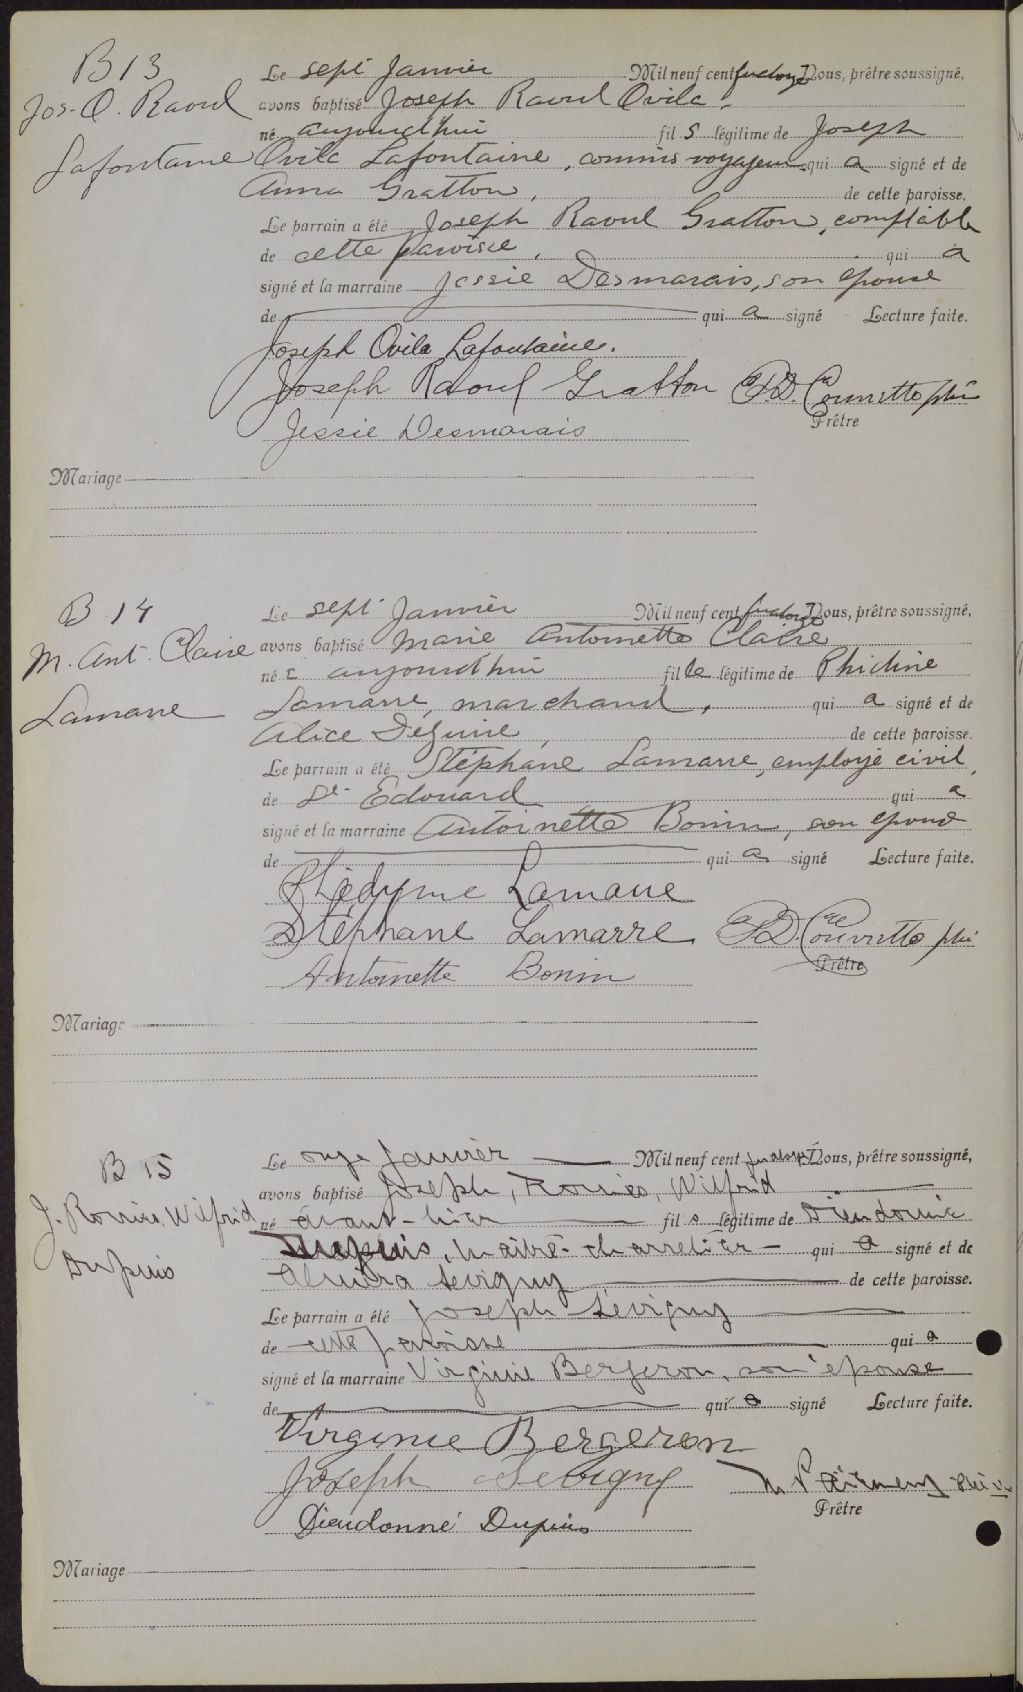 B 13
Jos-O. Raoul
Lafontaine
Le sept Janvier Mil neuf cent quatorze Nous, prêtre soussigné,
avons baptisé Joseph Raoul Ovila,
né aujourd'hui fil s légitime de Joseph
Ovila Lafontaine, commis voyageur qui a signé et de
Anna Gratton, de cette paroisse.
Le parrain a été Joseph Raoul Gratton, comptable
de cette paroisse, qui a
signé et la marraine Jessie Desmarais, son épouse
de qui a signé Lecture faite.
Joseph Ovila Lafontaine.
Joseph Raoul Gratton
Jessie Desmarais
Prêtre
Mariage
B 14
M. Ant. Claire
Lamarre
Le sept Janvier Mil neuf cent quatorze Nous, prêtre soussigné,
avons baptisé Marie Antoinette Claire
né e aujourd'hui fil le légitime de Phidime
Lamarre, marchand, qui a signé et de
Alice Déguire, de cette paroisse.
Le parrain a été Stéphane Lamarre, employé civil,
de St Edouard qui a
signé et la marraine Antoinette Bonin, son épouse
de qui a signé Lecture faite.
Phédyme Lamarre
Stéphane Lamarre
Antoinette Bonin
Prêtre
Mariage
B 15
J. Roméo, Wilfrid
Dupuis
Le onze Janvier Mil neuf cent quatorze Nous, prêtre soussigné,
avons baptisé Joseph, Roméo, Wilfrid
né avant-hier fil s légitime de Dieudonné
Dupuis, maître-charretier qui a signé et de
Alméra Sévigny de cette paroisse.
Le parrain a été Joseph Sévigny
de cette paroisse qui a
signé et la marraine Virginie Bergeron, son épouse
de qui a signé Lecture faite.
Virginie Bergeron
Joseph Sévigny
Dieudonné Dupuis
Prêtre
Mariage